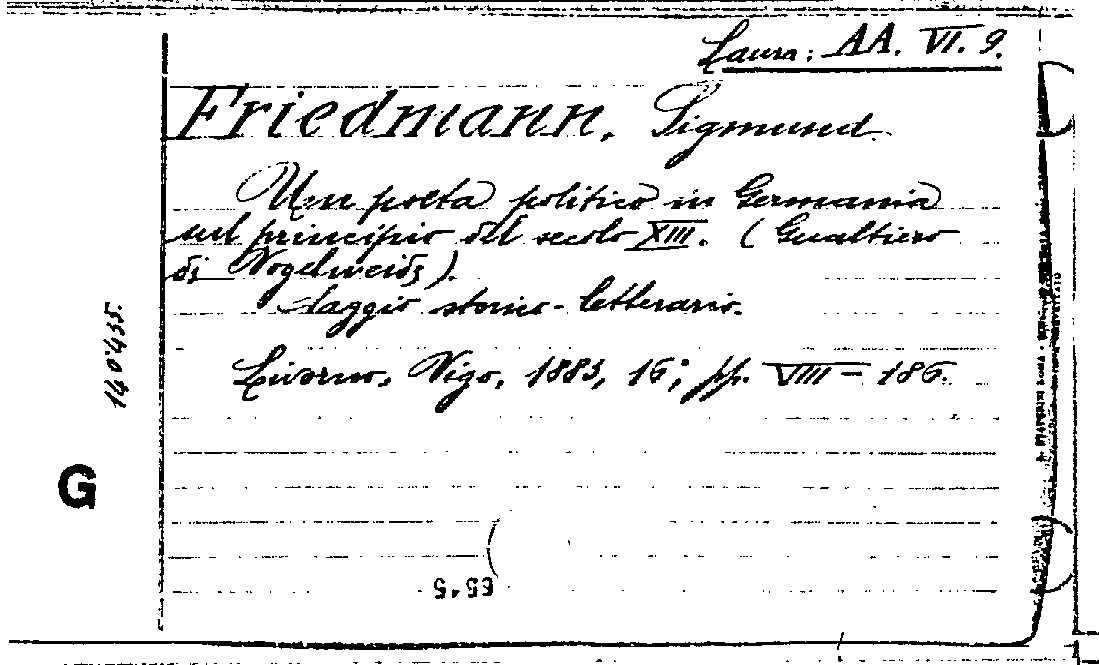 Laura: AA. VI. 9.
Friedmann, Sigmund.
Un poeta politico in Germania
nel principio del secolo XIII. (Gualtiero
di Vogelweide).
Saggio storico-letterario.
Livorno, Vigo, 1883, 16; pp. VIII-186.
140435.
G